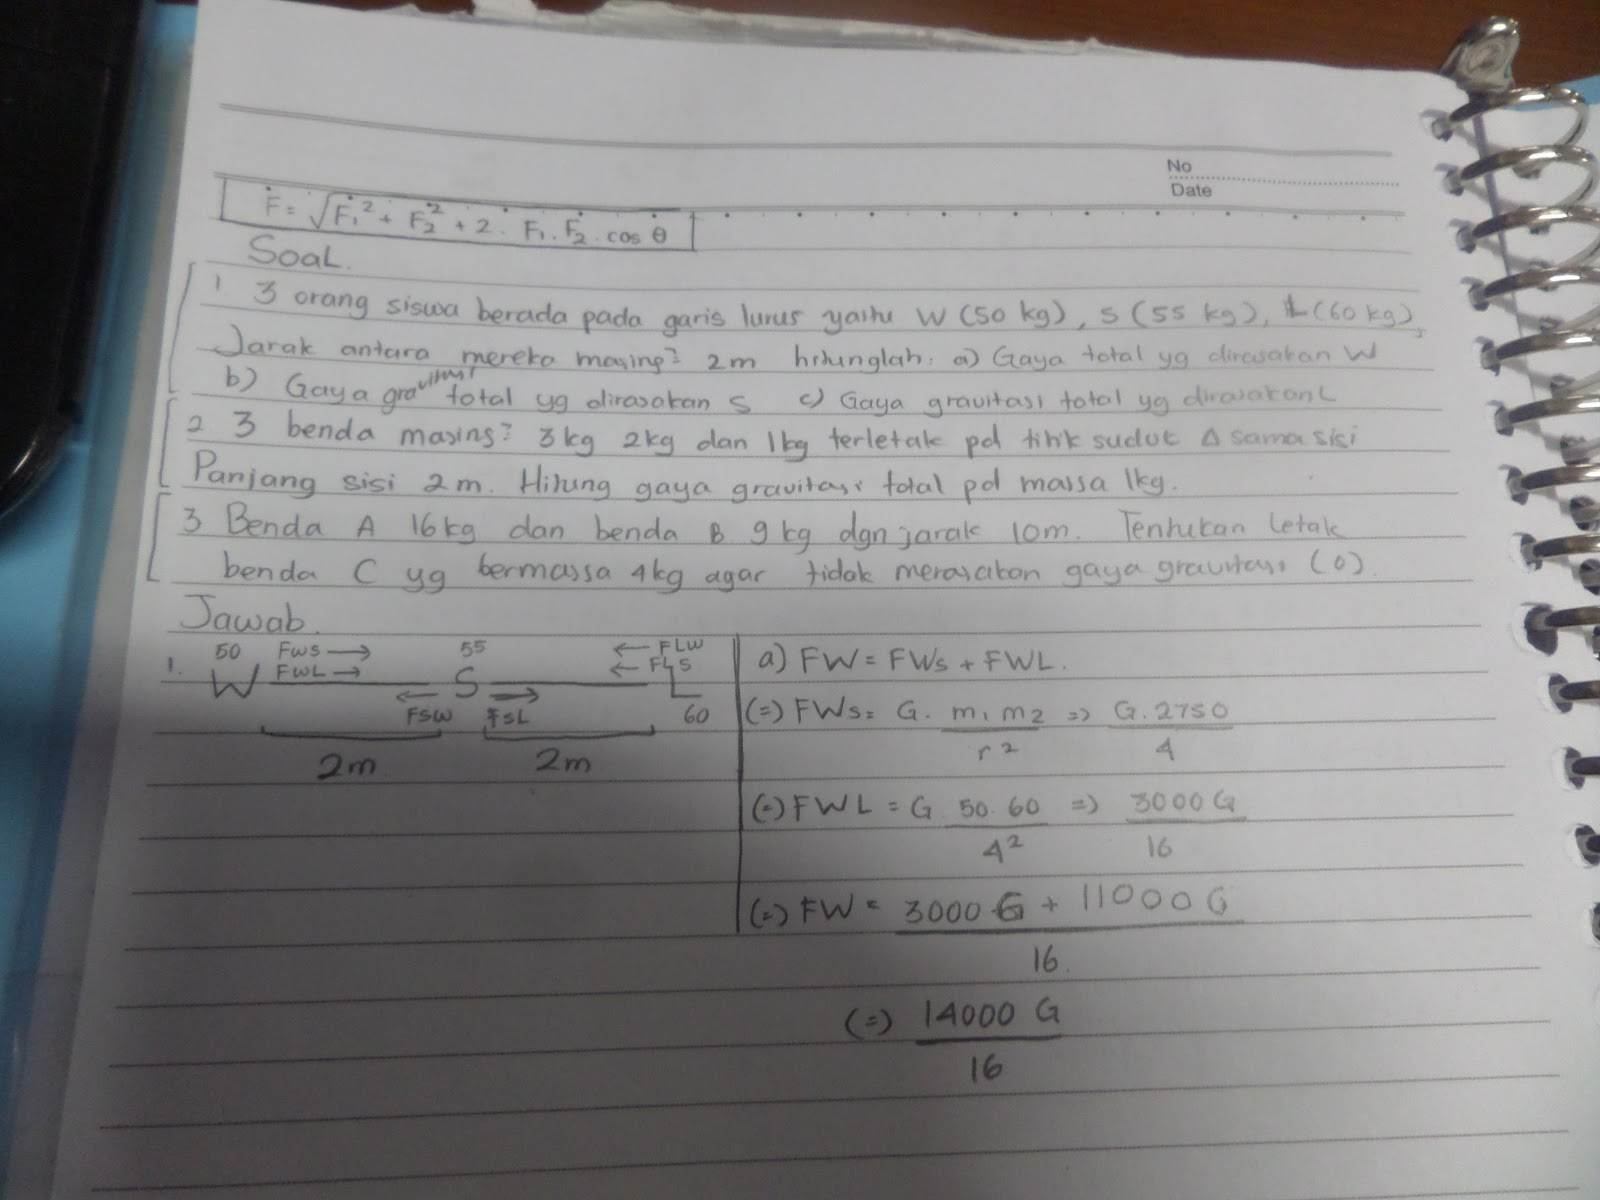 No
Date
F = √F₁² + F₂² + 2 . F₁ . F₂ . cos θ
Soal.
1. 3 orang siswa berada pada garis lurus yaitu W (50 kg), S (55 kg), L (60 kg),
Jarak antara mereka masing² 2m hitunglah. a) Gaya total yg dirasakan W
b) Gaya gravitasi total yg dirasakan S c) Gaya gravitasi total yg dirasakan L
2 3 benda masing² 3kg 2kg dan 1kg terletak pd titik sudut Δ sama sisi
Panjang sisi 2m. Hitung gaya gravitasi total pd massa 1kg.
3 Benda A 16kg dan benda B 9kg dgn jarak 10m. Tentukan letak
benda C yg bermassa 4kg agar tidak merasakan gaya gravitasi (0).
Jawab.
1. 50 FWS → 55 ← FLW
W FWL → S ← FLS L
← FSW → FSL 60
2m 2m
a) FW = FWS + FWL.
(=) FWS = G . m₁ m₂ / r² => G . 2750 / 4
(=) FWL = G 50.60 / 4² => 3000 G / 16
(=) FW = 3000 G + 11000 G / 16.
(=) 14000 G / 16